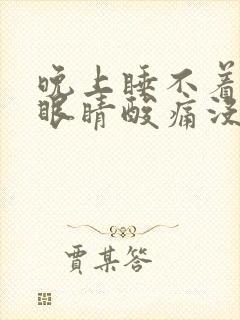 晚上睡不着
眼睛酸痛没
贾某答